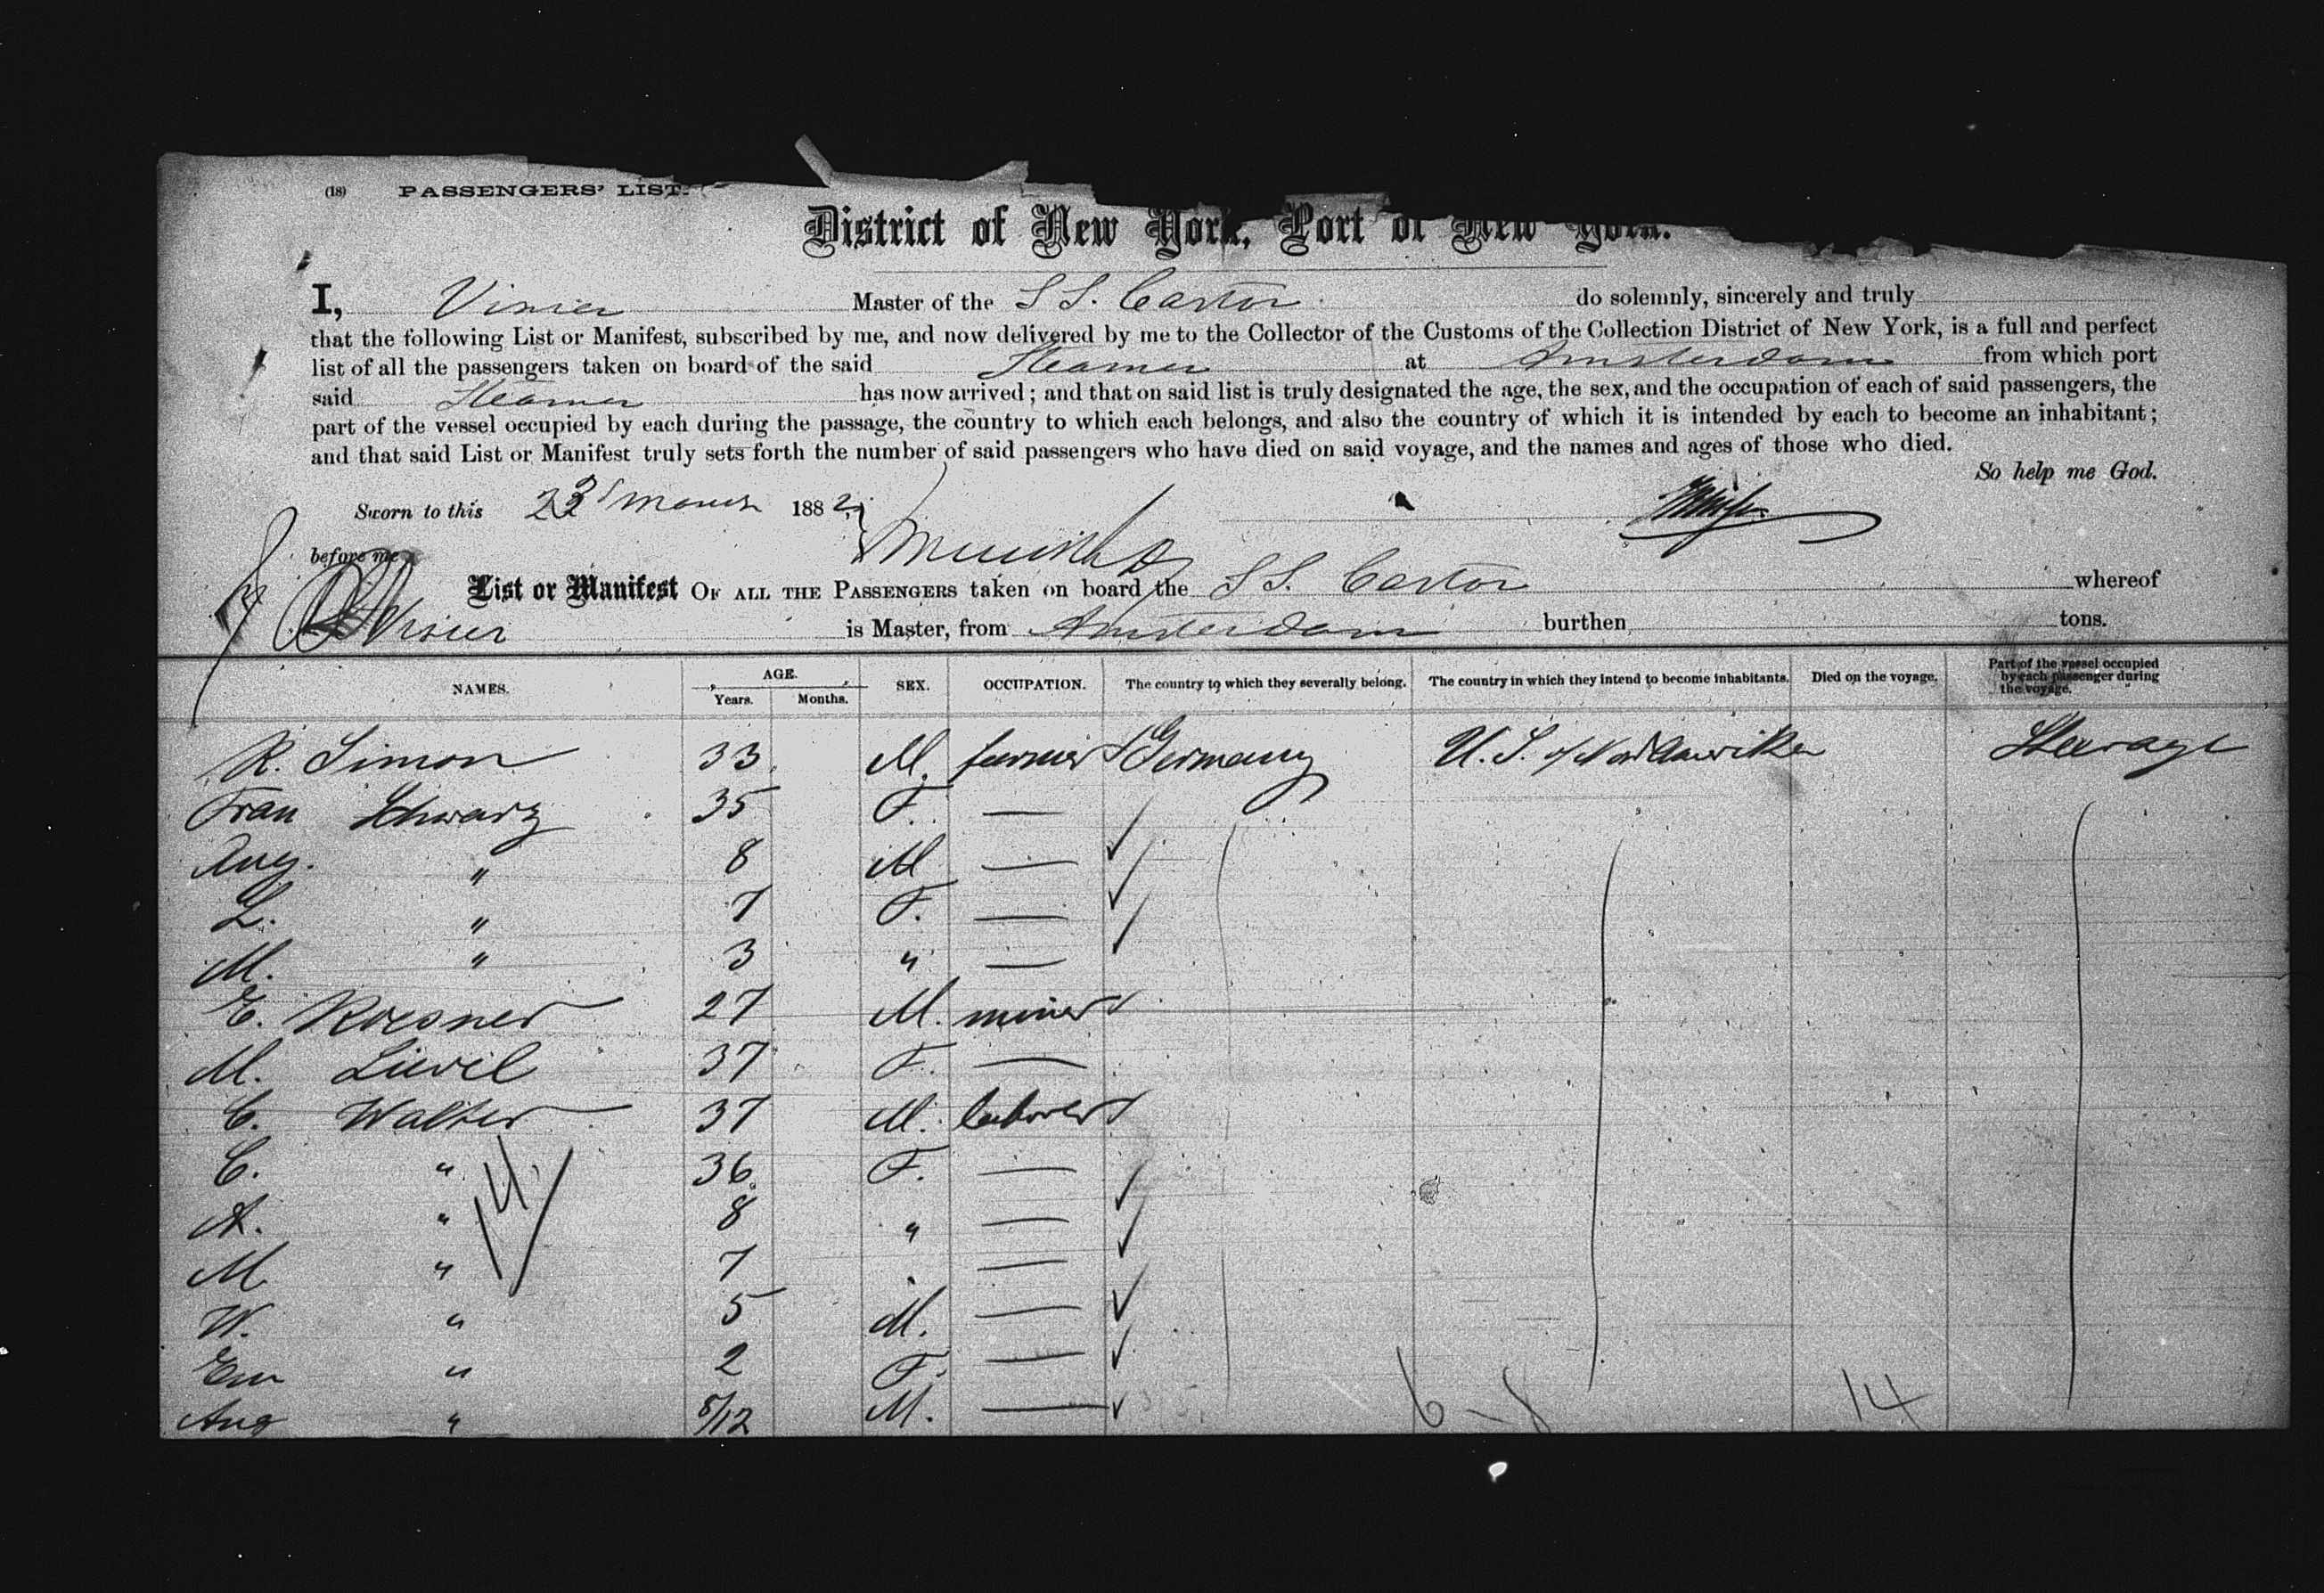 (18) PASSENGERS' LIST.
District of New York, Port of New York.
I, Visser Master of the S S. Castor do solemnly, sincerely and truly
that the following List or Manifest, subscribed by me, and now delivered by me to the Collector of the Customs of the Collection District of New York, is a full and perfect
list of all the passengers taken on board of the said Steamer at Amsterdam from which port
said Steamer has now arrived; and that on said list is truly designated the age, the sex, and the occupation of each of said passengers, the
part of the vessel occupied by each during the passage, the country to which each belongs, and also the country of which it is intended by each to become an inhabitant;
and that said List or Manifest truly sets forth the number of said passengers who have died on said voyage, and the names and ages of those who died.
So help me God.
Sworn to this 23 March 1882
before me
List or Manifest OF ALL THE PASSENGERS taken on board the S S. Castor whereof
Visser is Master, from Amsterdam burthen tons.
NAMES. AGE. Years. Months. SEX. OCCUPATION. The country to which they severally belong. The country in which they intend to become inhabitants. Died on the voyage. Part of the vessel occupied by each passenger during the voyage.
R. Simon 33 M. farmer Germany U. S. of Nord Amerika Steerage
Frau Schwarz 35 F. —
Aug. " 8 M —
L. " 7 F. —
M. " 3 " —
E. Roesner 27 M. miner
M. Liewil 37 F. —
C. Walter 37 M. laborer
C. " 36 F. —
A. " 8 " —
M " 7 —
W. " 5 M. —
Em " 2 F. —
Aug " 8/12 M. —
14
6 - 8 14